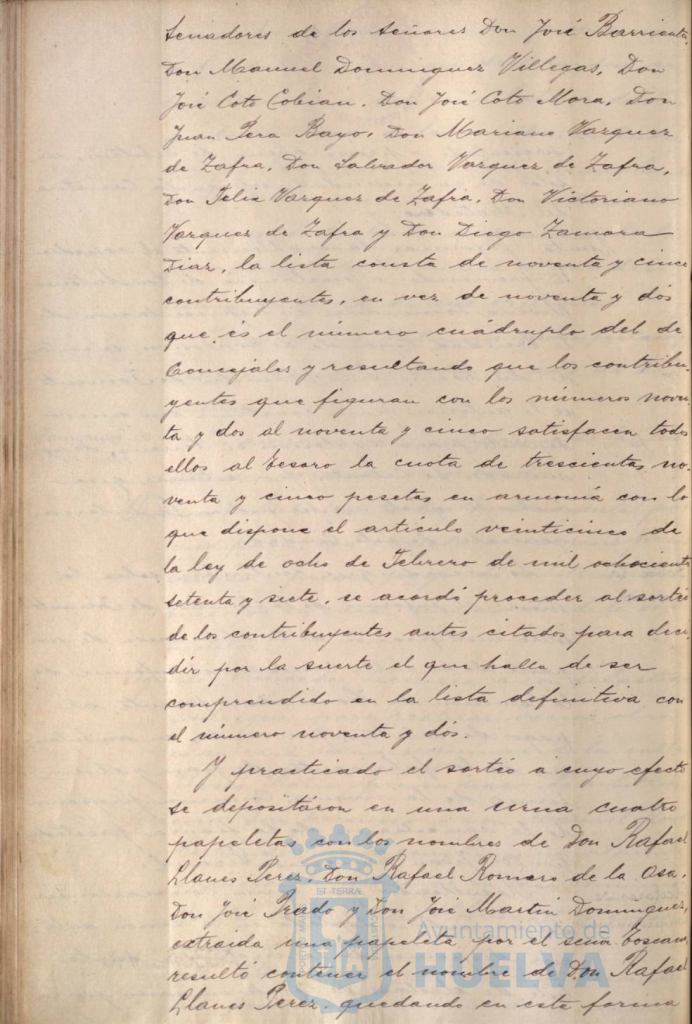 Senadores de los Señores Don José Barrientos,
Don Manuel Dominguez Villegas, Don
José Coto Cobian, Don José Coto Mora, Don
Juan Pera Bayo, Don Mariano Vazquez
de Zafra, Don Salvador Vazquez de Zafra,
Don Felix Vazquez de Zafra, Don Victoriano
Vazquez de Zafra y Don Diego Zamora
Diaz, la lista consta de noventa y cinco
contribuyentes, en vez de noventa y dós
que és el número cuádruplo del de
Concejales y resultando que los contribu-
yentes que figuran con los números noven-
ta y dos al noventa y cinco satisfacen todos
ellos al Tesoro la cuota de trescientas no-
venta y cinco pesetas en armonía con lo
que dispone el artículo veinticinco de
la ley de ocho de Febrero de mil ochocient
setenta y siete, se acordó proceder al sorteo
de los contribuyentes antes citados para deci-
dir por la suerte el que halla de ser
comprendido en la lista definitiva con
el número noventa y dós.
Y practicado el sorteo á cuyo efecto
se depositáron en una urna cuatro
papeletas con los nombres de Don Rafael
Llanes Perez, Don Rafael Romero de la Osa,
Don José Prado y Don José Martin Dominguez,
extraida una papeleta por el señor Toscano,
resultó contener el nombre de Don Rafael
Llanes Perez, quedando en esta forma
Ayuntamiento de
HUELVA